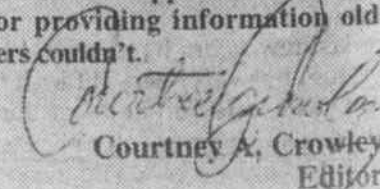 or providing information old
ers couldn't.
Courtney A. Crowley
Editor